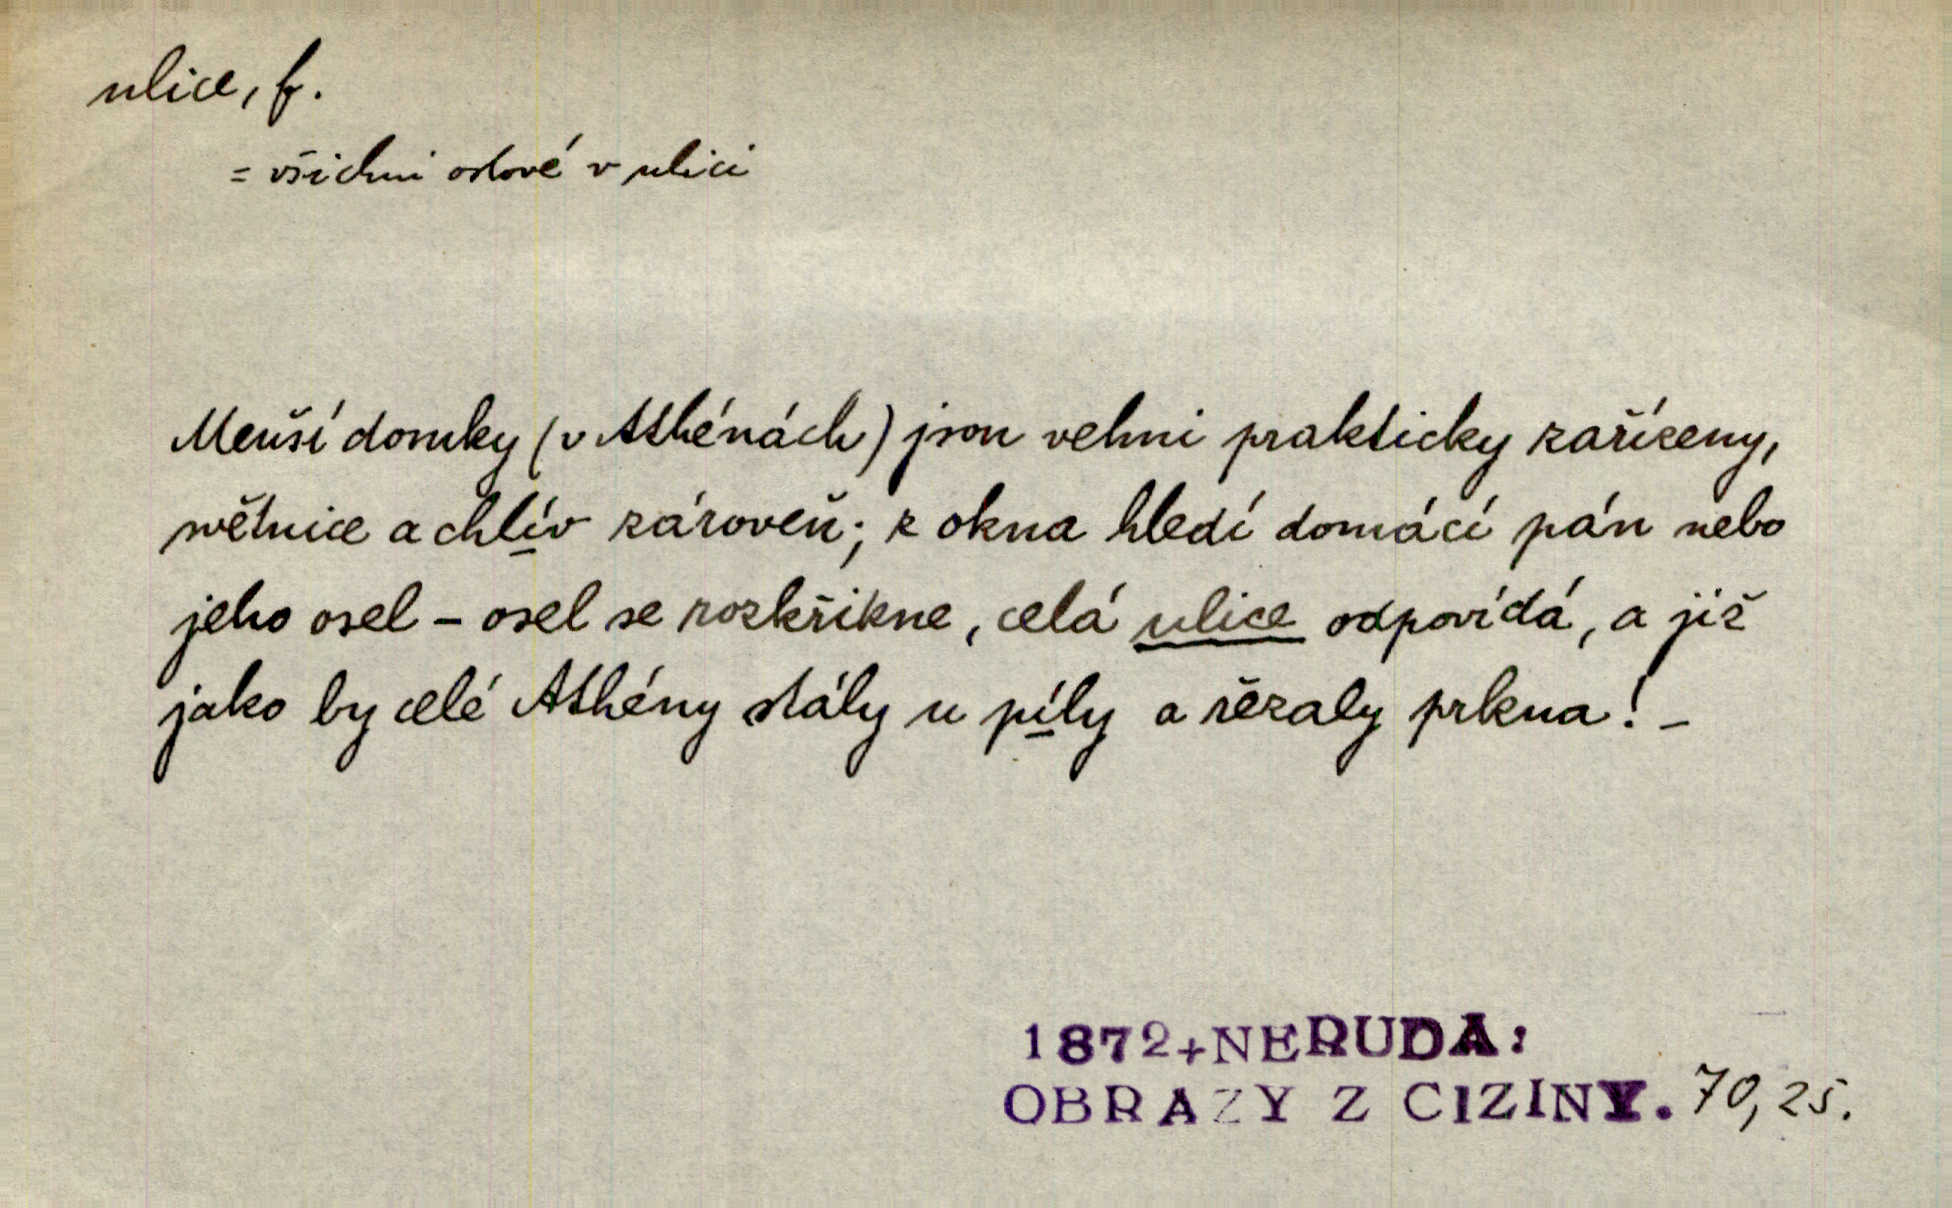 ulice, f.
= všichni oslové v ulici
Menší domky (v Athénách) jsou velmi prakticky zařízeny,
světnice a chlív zároveň; z okna hledí domácí pán nebo
jeho osel – osel se rozkřikne, celá ulice odpovídá, a již
jako by celé Athény stály u píly a řezaly prkna! –
1872+NERUDA:
OBRAZY Z CIZINY. 70,25.